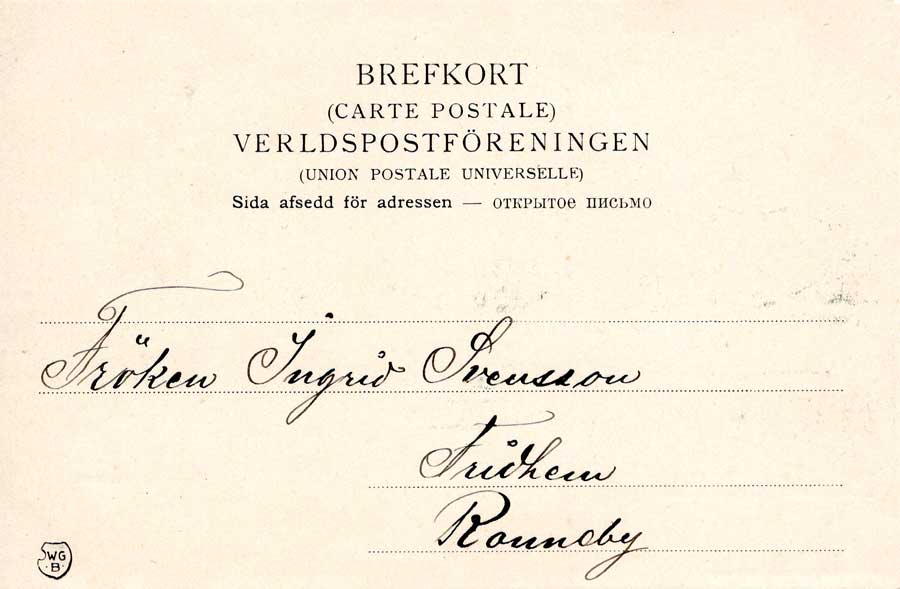 BREFKORT
(CARTE POSTALE)
VERLDSPOSTFÖRENINGEN
(UNION POSTALE UNIVERSELLE)
Sida afsedd för adressen — открытое письмо
Fröken Ingrid Svensson
Fridhem
Ronneby
WG
·B·